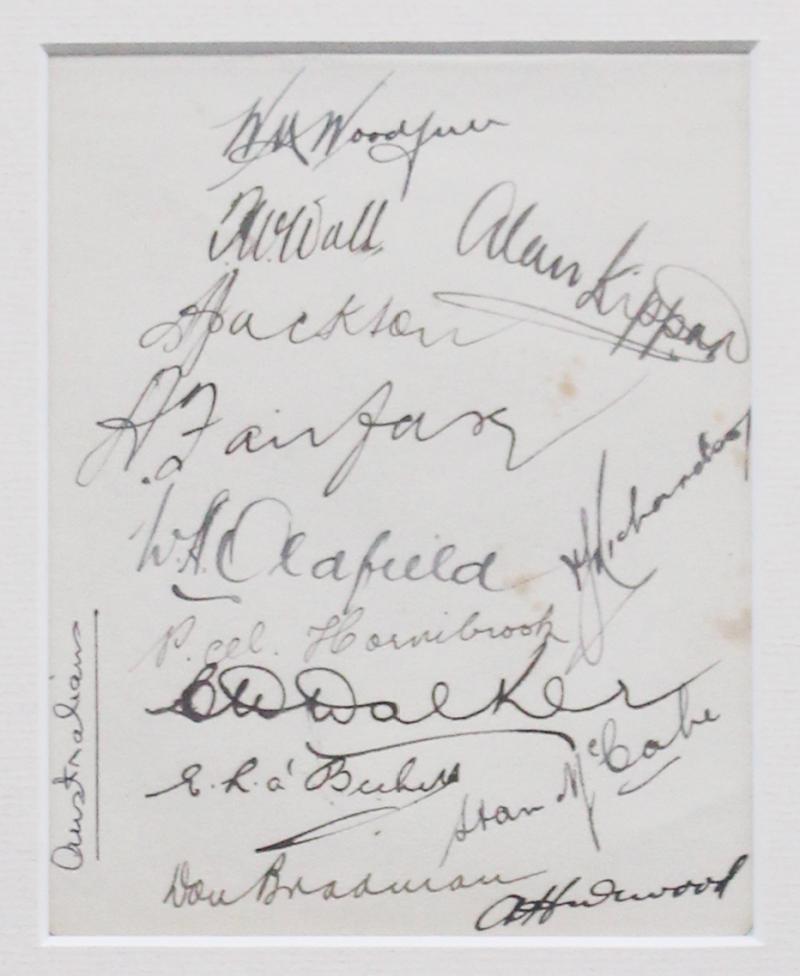 W M Woodfull
T. W. Wall
Alan Kippax
A Jackson
A. Fairfax
W. A. Oldfield
V Richardson
P. M. Hornibrook
C W Walker
E. L. a' Beckett
Stan McCabe
Don Bradman
A Hurwood
Australians